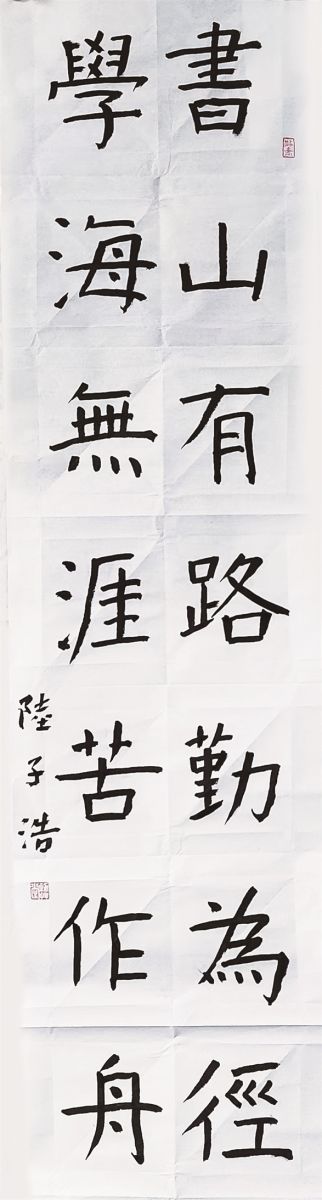 書山有路勤為徑
學海無涯苦作舟
陸子浩